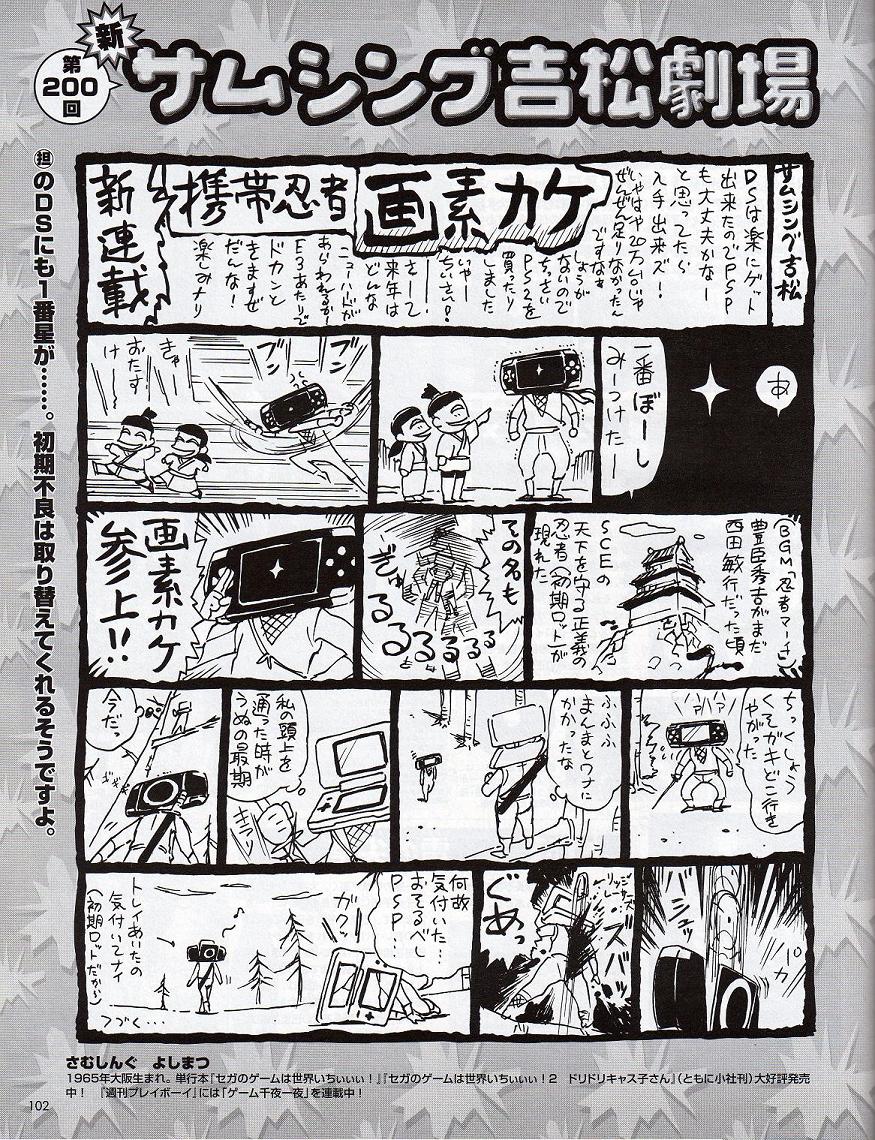 第
200
回
新
サムシング吉松劇場
㊣のDSにも1番星が……。初期不良は取り替えてくれるそうですよ。
サムシング吉松
DSは楽にゲット
出来たのでPSP
も大丈夫かなー
と思ってたら
入手出来ズ!
いやはや20万台じゃ
ぜんぜん足りなかったん
ですなぁ
しょうが
ないので
ちっさい
PS2を
買ったり
しました
いやー
ちいさい!
さーて
来年は
どんな
ニューハードが
あらわれるか!
E3あたりで
ドカンと
きますぜ
だんな!
楽しみナリ
携帯忍者
画素カケ
新連載
あ
一番ぼーし
みーつけたー
ブン
ブン
きゃー
おたす
けー
(BGM「忍者マーチ」)
豊臣秀吉がまだ
西田敏行だった頃
SCEの
天下を守る正義の
忍者(初期ロット)が
現れた
その名も
ぎゅるるるるるる
画素カケ
参上!!
ちっくしょう
くそガキどこ行き
やがった
ハァハァ
ふふふ
まんまとワナに
かかったな
私の頭上を
通った時が
うぬの最期
キラリ
今だっ
パカ
バシュッ
ズバッ
ぐあっ
何故
気付いた…
おそるべし
PSP…
ガクッ
トレイあいたの
気付いてナイ
(初期ロットだから)
つづく…
さむしんぐ よしまつ
1965年大阪生まれ。単行本『セガのゲームは世界いちぃぃぃ!』『セガのゲームは世界いちぃぃぃ!2 ドリドリキャス子さん』(ともに小社刊)大好評発売
中! 『週刊プレイボーイ』には「ゲーム千夜一夜」を連載中!
102